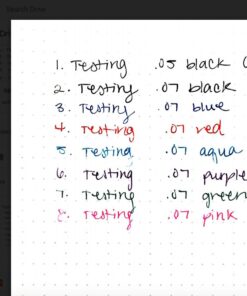 Search Drive
1. Testing .05 black
2. Testing .07 black
3. Testing .07 blue
4. Testing .07 red
5. Testing .07 aqua
6. Testing .07 purple
7. Testing .07 green
8. Testing .07 pink